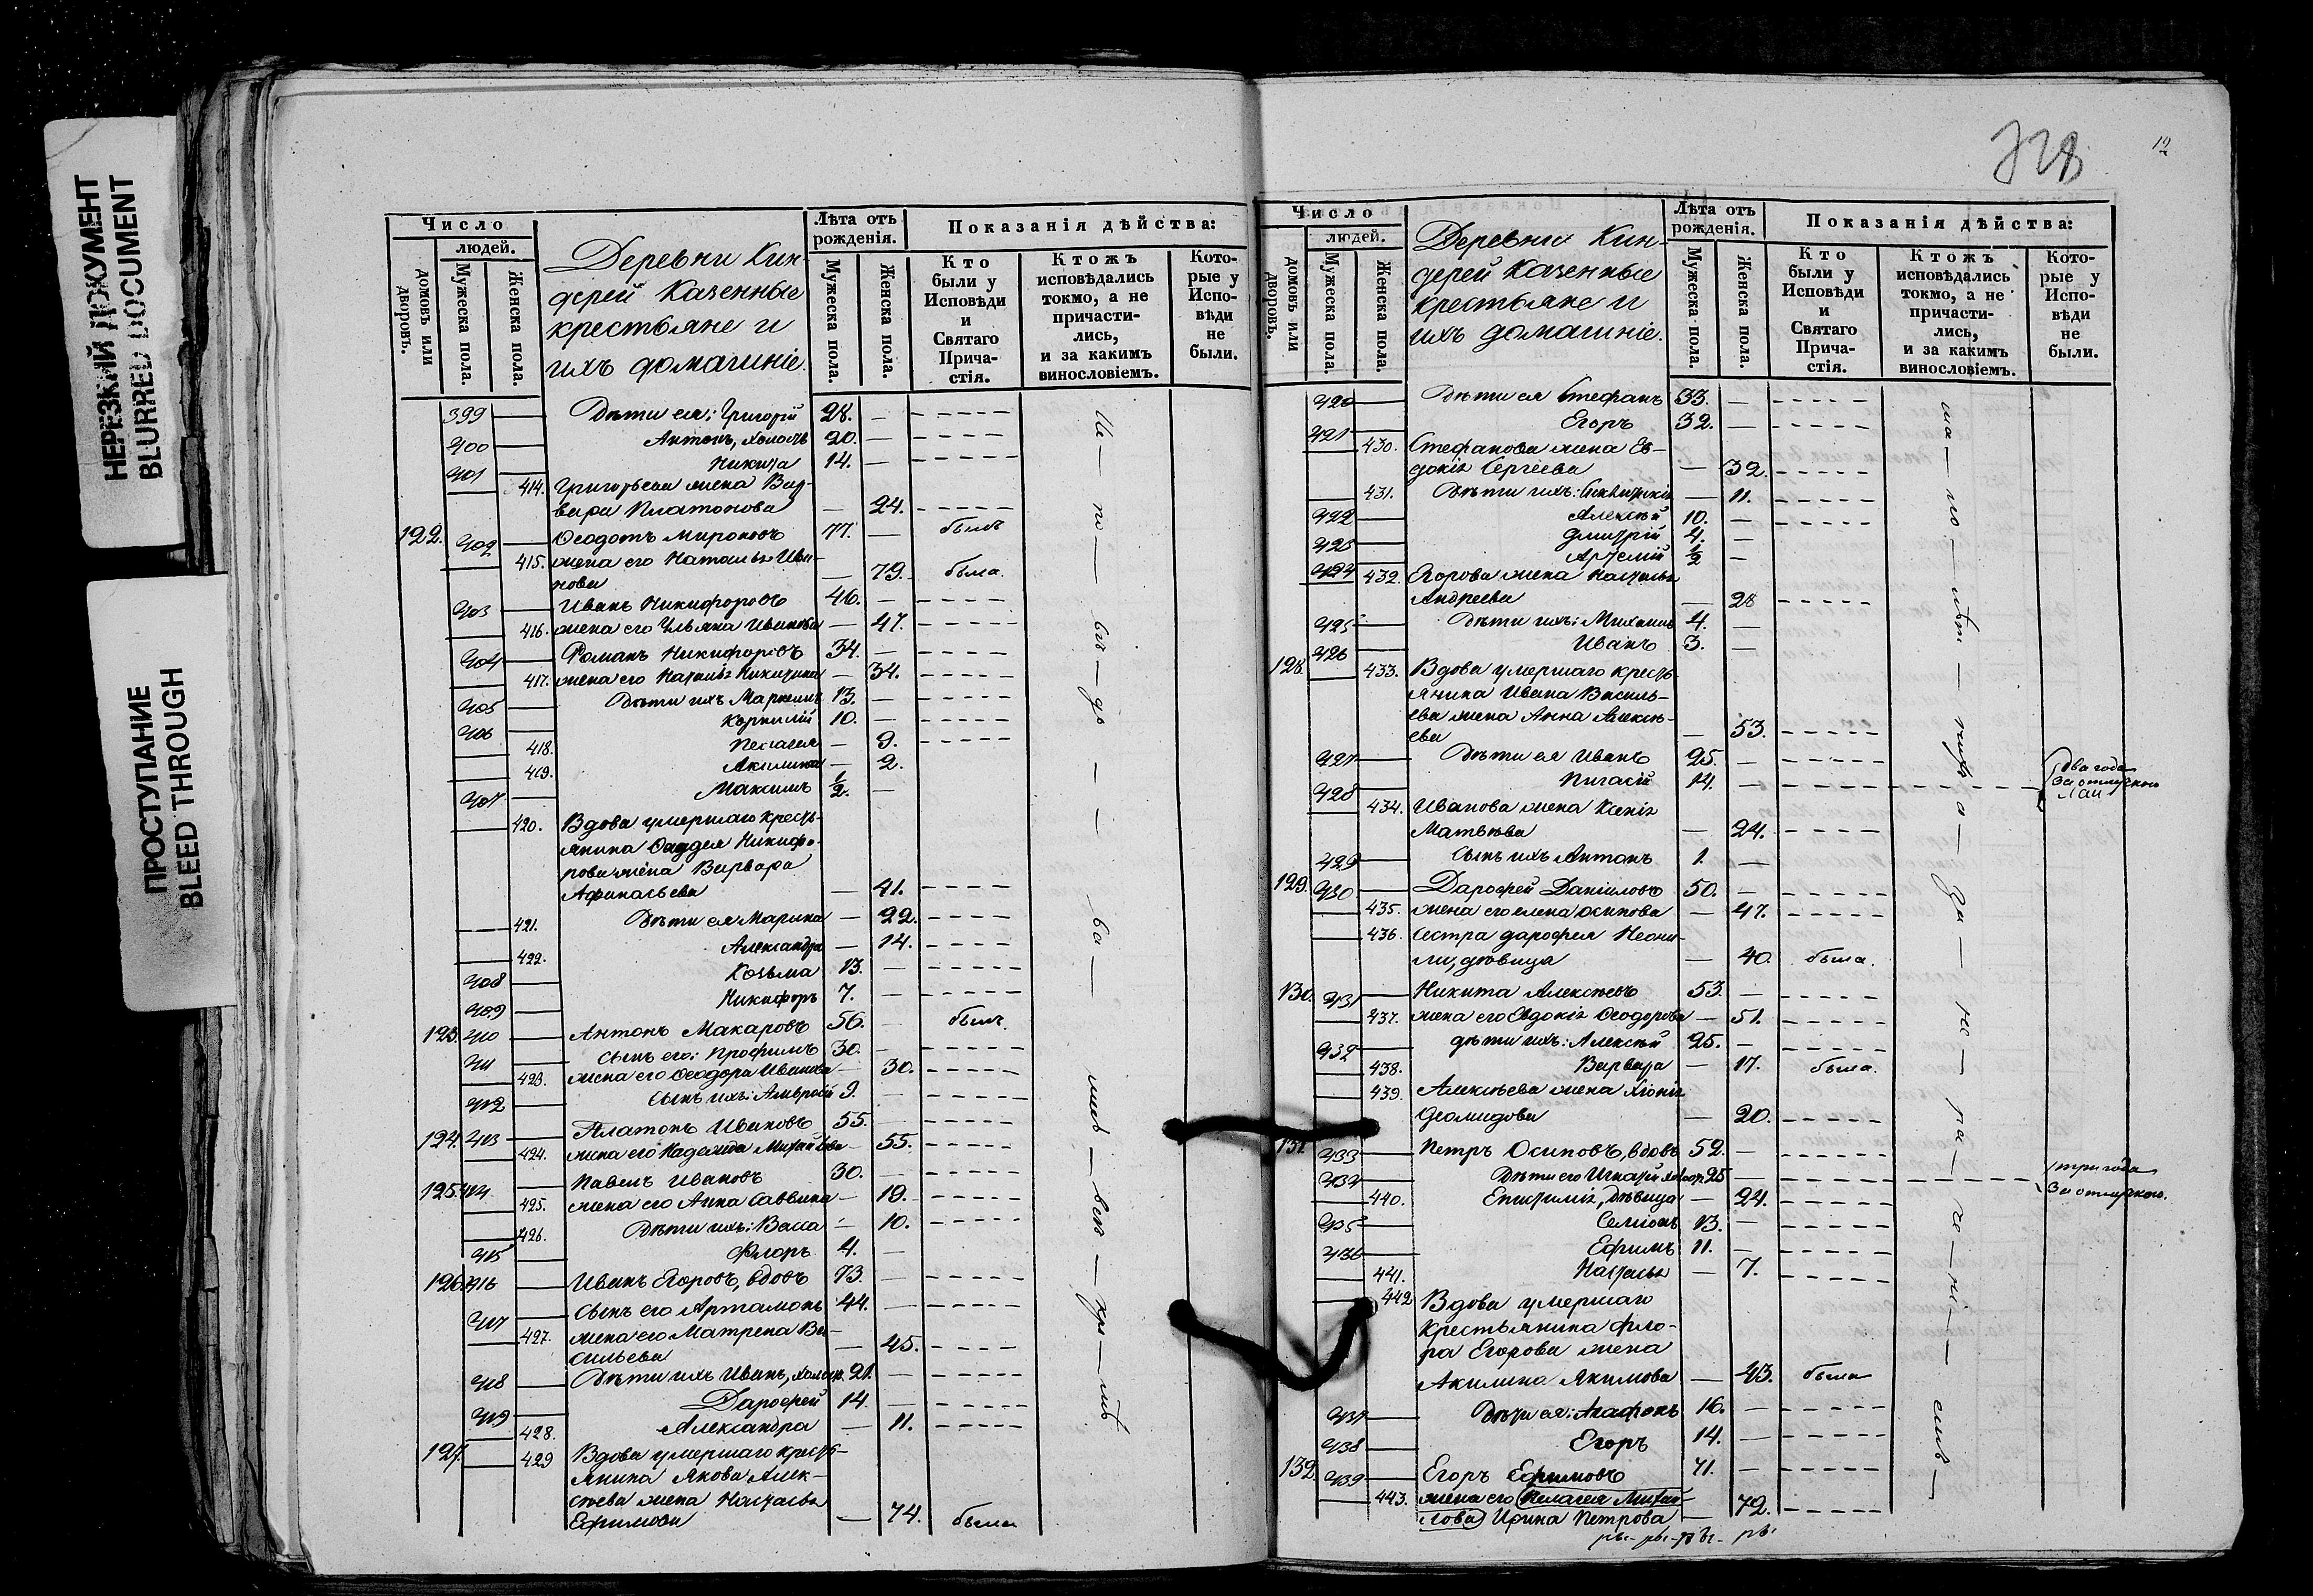 НЕРЕЗКИЙ ДОКУМЕНТ
BLURRED DOCUMENT
ПРОСТУПАНИЕ
BLEED THROUGH
Число
людей.
домовъ или дворовъ.
Мужеска пола.
Женска пола.
Деревни Кин-
дерей Казенные
крестьяне и
ихъ домашніе.
Лѣта отъ рожденія.
Мужеска пола.
Женска пола.
Показанія дѣйства:
Кто были у Исповѣди и Святаго Прича-стія.
Ктожъ исповѣдались токмо, а не причасти-лись, и за какимъ винословіемъ.
Кото-рые у Испо-вѣди не были.
399 Дѣти ея: Григорій 28. —
400 Антонъ, холостъ 20. —
401 Никита 14. —
414. Григорьева жена Вар-
вара Платонова — 24.
122. 402 Ѳеодотъ Мироновъ 77. — былъ
415. жена его Наталья Ива-
нова — 79. была.
403 Иванъ Никифоровъ 46. —
416. жена его Ульяна Иванова — 47.
404 Романъ Никифоровъ 34. —
417. жена его Наталья Никитина — 34.
405 Дѣти ихъ 13. —
406 Корнилій 10. —
418. Пелагея — 9.
419. Акилина — 2.
407 Максимъ ½. —
420. Вдова умершаго кресть-
янина Ѳаддея Никифо-
рова жена Варвара
Афанасьева — 41.
421. Дѣти ея Марина — 22.
422. Александра — 14.
408 Козьма 13. —
409 Никифоръ 7. —
123. 410 Антонъ Макаровъ 56. — былъ.
411 Сынъ его: Трофимъ 30. —
423. жена его Ѳеодора Иванова — 30.
412 Сынъ ихъ: Амвросій 9. —
124. 413 Платонъ Ивановъ 55. —
424. жена его Надежда Михайлова — 55.
125. 414 Павелъ Ивановъ 30. —
425. жена его Анна Саввина — 19.
426. Дѣти ихъ: Васса — 10.
415 Флоръ 4. —
126. 416 Иванъ Егоровъ, вдовъ 73. —
417 Сынъ его Артамонъ 44. —
427. жена его Матрена Ва-
сильева — 45.
418 Дѣти ихъ Иванъ, холост. 21. —
419 Дарофей 14. —
428. Александра — 11.
127. 429 Вдова умершаго кресть-
янина Якова Алек-
сѣева жена Наталья
Ефимова — 74. была
12
Число
людей.
домовъ или дворовъ.
Мужеска пола.
Женска пола.
Деревни Кин-
дерей Казенные
крестьяне и
ихъ домашніе.
Лѣта отъ рожденія.
Мужеска пола.
Женска пола.
Показанія дѣйства:
Кто были у Исповѣди и Святаго Прича-стія.
Ктожъ исповѣдались токмо, а не причасти-лись, и за какимъ винословіемъ.
Кото-рые у Испо-вѣди не были.
420 Дѣти ея Стефанъ 33. —
421 Егоръ 32. —
430. Стефанова жена Ев-
докія Сергѣева — 32.
431. Дѣти ихъ: — 11.
422 Алексѣй 10. —
423 Дмитрій 4. —
424 Артемій ½ —
432. Егорова жена Наталья
Андреева — 28
425 Дѣти ихъ: Михаилъ 4. —
426 Иванъ 3. —
128. 433. Вдова умершаго кресть-
янина Ивана Василь-
ева жена Анна Алексѣ-
ева — 53.
427 Дѣти ея Иванъ 25. —
428 Пигасій 14. — два года за отлучкою
434. Иванова жена Ксенія
Матвѣева — 24.
429 Сынъ ихъ Антонъ 1. —
129. 430 Дарофей Даніиловъ 50. —
435. жена его Елена Осипова — 47.
436. Сестра Дарофея Неони-
ла, дѣвица — 40. была.
130. 431 Никита Алексѣевъ 53. —
437. жена его Евдокія Ѳеодорова — 51.
432 дѣти ихъ: Алексѣй 25. —
438. Варвара — 17. была.
439. Алексѣева жена Хіонія
Діомидова — 20.
131. 433 Петръ Осиповъ, вдовъ 52. —
434 Дѣти его Игнатій холост. 25 — три года за отлучкою.
440. Епихимія, дѣвица — 24.
435 Семіонъ 13. —
436 Ефимъ 11. —
441. Наталья — 7.
442 Вдова умершаго
Крестьянина Фло-
ра Егорова жена
Акилина Якимова — 43. была
437 Дѣти ея: Агафонъ 16. —
438 Егоръ 14. —
132. 439 Егоръ Ефимовъ 71. —
443. жена его Пелагея Михай-
лова Ирина Петрова — 72.